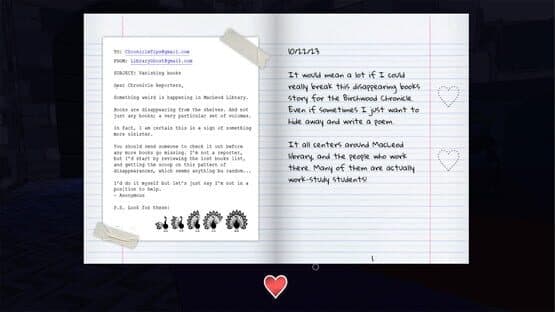 TO: ChronicleTips@gmail.com
FROM: LibraryGhost@gmail.com
SUBJECT: Vanishing books
Dear Chronicle Reporters,
Something weird is happening in MacLeod Library.
Books are disappearing from the shelves. And not
just any books: a very particular set of volumes.
In fact, I am certain this is a sign of something
more sinister.
You should send someone to check it out before
any more books go missing. I'm not a reporter,
but I'd start by reviewing the lost books list,
and getting the scoop on this pattern of
disappearances, which seems anything but random...
I'd do it myself but let's just say I'm not in a
position to help.
- Anonymous
P.S. Look for these:
10/22/23
It would mean a lot if I could
really break this disappearing books
story for the Birchwood Chronicle.
Even if sometimes I just want to
hide away and write a poem.
It all centers around MacLeod
library, and the people who work
there. Many of them are actually
work-study students!
1